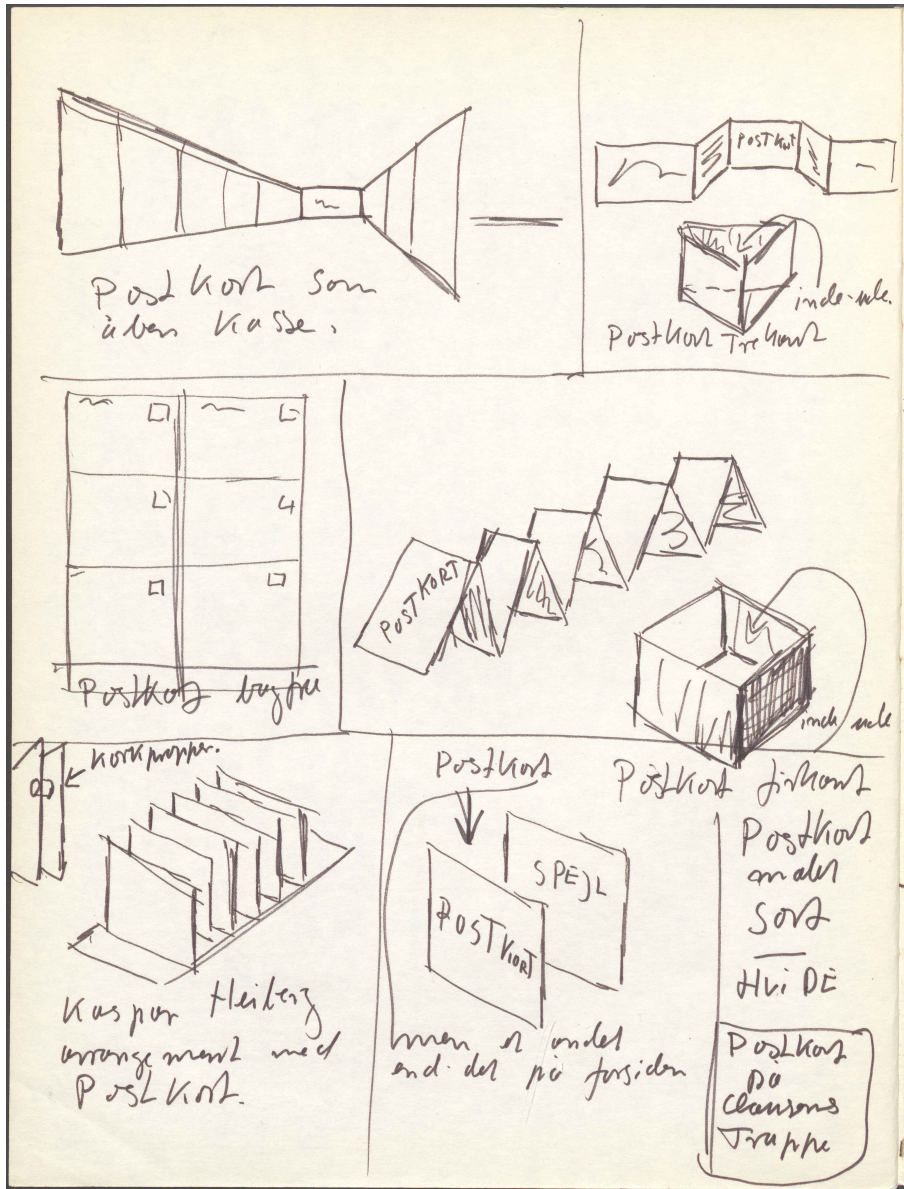 Postkort som
åben kasse.
POSTKORT
inde-ude.
Postkort Trekant
Postkort bagfra
POSTKORT
inde/ude
Postkort firkant
korkpropper.
Kaspar Heiberg
arrangement med
Postkort.
Postkort
SPEJL
POSTKORT
men et andet
end det på forsiden
Postkort
malet
Sort
HViDE
Postkort
på
Clausens
Trappe